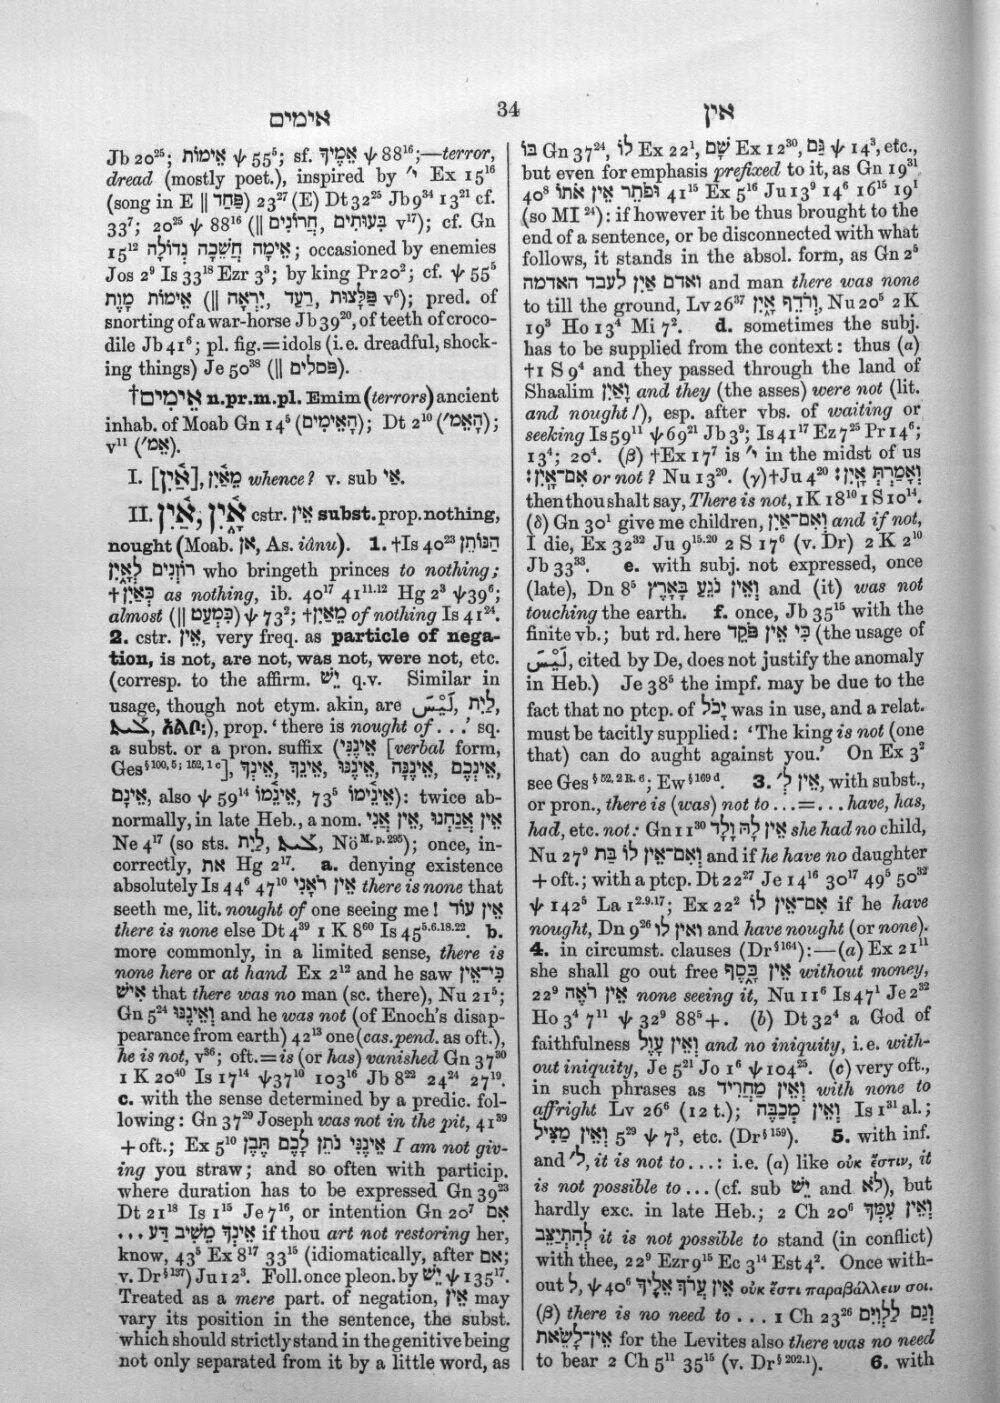 אימים
34
אין
Jb 20²⁵; אֵימוֹת ψ 55⁵; sf. אֵמֶיךָ ψ 88¹⁶;—terror,
dread (mostly poet.), inspired by י׳ Ex 15¹⁶
(song in E ‖ פַּחַד) 23²⁷ (E) Dt 32²⁵ Jb 9³⁴ 13²¹ cf.
33⁷; 20²⁵ ψ 88¹⁶ (‖ חֲרוֹנִים, בִּעוּתִים v¹⁷); cf. Gn
15¹² אֵימָה חֲשֵׁכָה גְדוֹלָה; occasioned by enemies
Jos 2⁹ Is 33¹⁸ Ezr 3³; by king Pr 20²; cf. ψ 55⁵
אֵימוֹת מָוֶת (‖ יִרְאָה, רַעַד, פַּלָּצוּת v⁶); pred. of
snorting of a war-horse Jb 39²⁰, of teeth of croco-
dile Jb 41⁶; pl. fig.=idols (i.e. dreadful, shock-
ing things) Je 50³⁸ (‖ פסלים).
†אֵימִים n.pr.m.pl. Emim (terrors) ancient
inhab. of Moab Gn 14⁵ (הָאֵימִים); Dt 2¹⁰ (הָאֵמ׳);
v¹¹ (אֵמ׳).
I. [אַ֫יִן], מֵאַ֫יִן whence? v. sub אֵי.
II. אַ֫יִן, אָ֑יִן cstr. אֵין subst. prop. nothing,
nought (Moab. אן, As. iânu). 1. †Is 40²³ הַנּוֹתֵן
רוֹזְנִים לְאָ֑יִן who bringeth princes to nothing;
†כְּאַיִן as nothing, ib. 40¹⁷ 41¹¹·¹² Hg 2³ ψ39⁶;
almost (‖ כִּמְעַט) ψ 73²; †מֵאַיִן of nothing Is 41²⁴.
2. cstr. אֵין, very freq. as particle of nega-
tion, is not, are not, was not, were not, etc.
(corresp. to the affirm. יֵשׁ q.v. Similar in
usage, though not etym. akin, are لَيْسَ, לַיִת,
ܠܝܬ, አልቦ፡), prop. ‘there is nought of . . .’ sq.
a subst. or a pron. suffix (אֵינֶנִּי [verbal form,
Ges§¹⁰⁰,⁵; ¹⁵²,¹ᶜ], אֵינְךָ, אֵינֵךְ, אֵינֶנּוּ, אֵינֶנָּה, אֵינְכֶם,
אֵינָם, also ψ 59¹⁴ אֵינֵמוֹ, 73⁵ אֵינֵימוֹ): twice ab-
normally, in late Heb., a nom. אֵין אֲנִי, אֵין אֲנַחְנוּ
Ne 4¹⁷ (so sts. לַיִת, ܠܝܬ, Nöᴹ·ᵖ·²⁹⁵); once, in-
correctly, את Hg 2¹⁷. a. denying existence
absolutely Is 44⁶ 47¹⁰ אֵין רֹאָנִי there is none that
seeth me, lit. nought of one seeing me! אֵין עוֹד
there is none else Dt 4³⁹ 1 K 8⁶⁰ Is 45⁵·⁶·¹⁸·²². b.
more commonly, in a limited sense, there is
none here or at hand Ex 2¹² and he saw כִּי־אֵין
אִישׁ that there was no man (sc. there), Nu 21⁵;
Gn 5²⁴ וְאֵינֶנּוּ and he was not (of Enoch's disap-
pearance from earth) 42¹³ one (cas. pend. as oft.),
he is not, v³⁶; oft.=is (or has) vanished Gn 37³⁰
1 K 20⁴⁰ Is 17¹⁴ ψ37¹⁰ 103¹⁶ Jb 8²² 24²⁴ 27¹⁹.
c. with the sense determined by a predic. fol-
lowing: Gn 37²⁹ Joseph was not in the pit, 41³⁹
+ oft.; Ex 5¹⁰ אֵינֶנִּי נֹתֵן לָכֶם תֶּבֶן I am not giv-
ing you straw; and so often with particip.
where duration has to be expressed Gn 39²³
Dt 21¹⁸ Is 1¹⁵ Je 7¹⁶, or intention Gn 20⁷ אִם
אֵינְךָ מֵשִׁיב דַּע ... if thou art not restoring her,
know, 43⁵ Ex 8¹⁷ 33¹⁵ (idiomatically, after אִם;
v. Dr§¹³⁷) Ju 12³. Foll. once pleon. by יֵשׁ ψ 135¹⁷.
Treated as a mere part. of negation, אֵין may
vary its position in the sentence, the subst.
which should strictly stand in the genitive being
not only separated from it by a little word, as
בּוֹ Gn 37²⁴, לוֹ Ex 22¹, שָׁם Ex 12³⁰, גַּם ψ 14³, etc.,
but even for emphasis prefixed to it, as Gn 19³¹
40⁸ וּפֹתֵר אֵין אֹתוֹ 41¹⁵ Ex 5¹⁶ Ju 13⁹ 14⁶ 16¹⁵ 19¹
(so MI ²⁴): if however it be thus brought to the
end of a sentence, or be disconnected with what
follows, it stands in the absol. form, as Gn 2⁵
ואדם אַיִן לעבד האדמה and man there was none
to till the ground, Lv 26³⁷ וְרֹדֵף אָיִן, Nu 20⁵ 2 K
19³ Ho 13⁴ Mi 7². d. sometimes the subj.
has to be supplied from the context: thus (a)
†1 S 9⁴ and they passed through the land of
Shaalim וָאַיִן and they (the asses) were not (lit.
and nought!), esp. after vbs. of waiting or
seeking Is 59¹¹ ψ 69²¹ Jb 3⁹; Is 41¹⁷ Ez 7²⁵ Pr 14⁶;
13⁴; 20⁴. (β) †Ex 17⁷ is י׳ in the midst of us
אִם־אָיִן׃ or not? Nu 13²⁰. (γ) †Ju 4²⁰ וְאָמַרְתְּ אָיִן׃
then thou shalt say, There is not, 1 K 18¹⁰ 1 S 10¹⁴.
(δ) Gn 30¹ give me children, וְאִם־אַיִן and if not,
I die, Ex 32³² Ju 9¹⁵·²⁰ 2 S 17⁶ (v. Dr) 2 K 2¹⁰
Jb 33³³. e. with subj. not expressed, once
(late), Dn 8⁵ וְאֵין נֹגֵעַ בָּאָרֶץ and (it) was not
touching the earth. f. once, Jb 35¹⁵ with the
finite vb.; but rd. here כִּי אֵין פֹּקֵד (the usage of
لَيْسَ, cited by De, does not justify the anomaly
in Heb.) Je 38⁵ the impf. may be due to the
fact that no ptcp. of יָכֹל was in use, and a relat.
must be tacitly supplied: ‘The king is not (one
that) can do aught against you.’ On Ex 3²
see Ges§⁵²,² ᴿ·⁶; Ew§¹⁶⁹ᵈ. 3. אֵין לְ, with subst.,
or pron., there is (was) not to ...=... have, has,
had, etc. not: Gn 11³⁰ אֵין לָהּ וָלָד she had no child,
Nu 27⁹ וְאִם־אֵין לוֹ בַּת and if he have no daughter
+ oft.; with a ptcp. Dt 22²⁷ Je 14¹⁶ 30¹⁷ 49⁵ 50³²
ψ 142⁵ La 1²·⁹·¹⁷; Ex 22² אִם־אֵין לוֹ if he have
nought, Dn 9²⁶ וְאֵין לוֹ and have nought (or none).
4. in circumst. clauses (Dr§¹⁶⁴):—(a) Ex 21¹¹
she shall go out free אֵין כָּסֶף without money,
22⁹ אֵין רֹאֶה none seeing it, Nu 11⁶ Is 47¹ Je 2³²
Ho 3⁴ 7¹¹ ψ 32⁹ 88⁵+. (b) Dt 32⁴ a God of
faithfulness וְאֵין עָוֶל and no iniquity, i.e. with-
out iniquity, Je 5²¹ Jo 1⁶ ψ 104²⁵. (c) very oft.,
in such phrases as וְאֵין מַחֲרִיד with none to
affright Lv 26⁶ (12 t.); וְאֵין מְכַבֶּה Is 1³¹ al.;
וְאֵין מַצִּיל 5²⁹ ψ 7³, etc. (Dr§¹⁵⁹). 5. with inf.
and לְ, it is not to ...: i.e. (a) like οὐκ ἔστιν, it
is not possible to ... (cf. sub יֵשׁ and לֹא), but
hardly exc. in late Heb.; 2 Ch 20⁶ וְאֵין עִמְּךָ
לְהִתְיַצֵּב it is not possible to stand (in conflict)
with thee, 22⁹ Ezr 9¹⁵ Ec 3¹⁴ Est 4². Once with-
out ל, ψ 40⁶ אֵין עֲרֹךְ אֵלֶיךָ οὐκ ἔστι παραβάλλειν σοι.
(β) there is no need to . . . 1 Ch 23²⁶ וְגַם לַלְוִיִּם
אֵין־לָשֵׂאת for the Levites also there was no need
to bear 2 Ch 5¹¹ 35¹⁵ (v. Dr§²⁰²·¹). 6. with